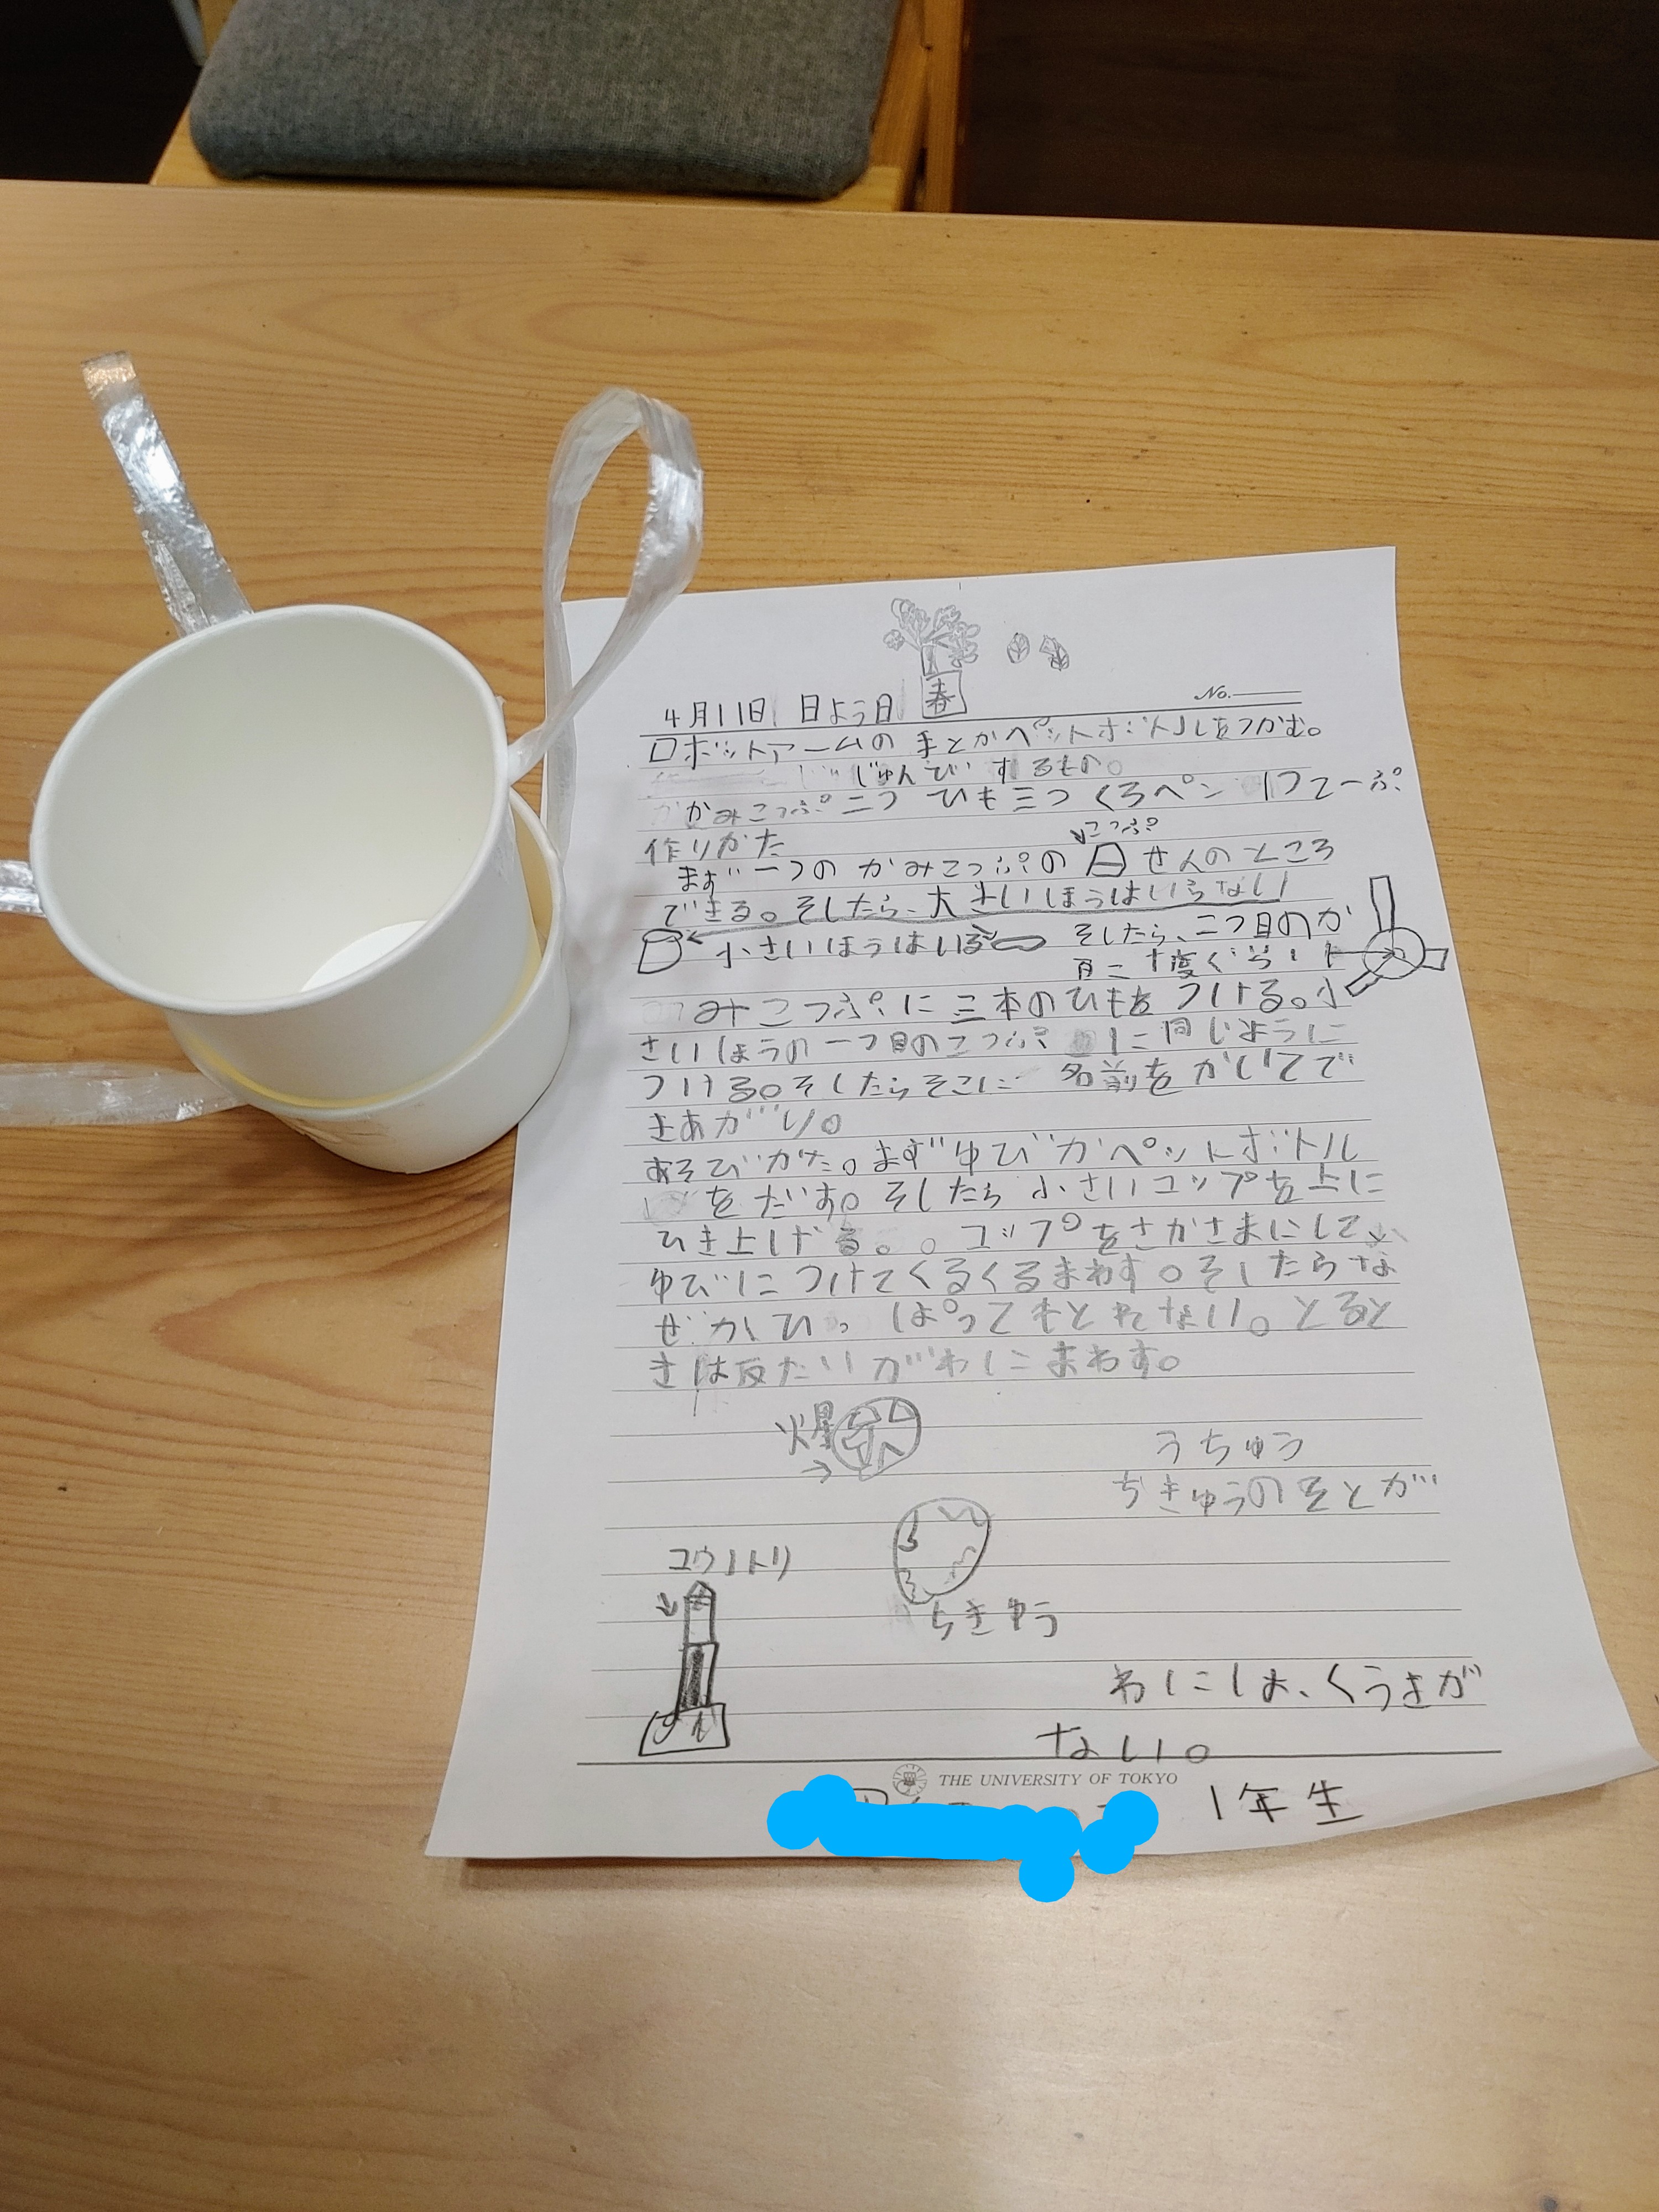 春
No.
4月11日 日よう日
ロボットアームの まとかペットボトルをつかむ。
じゅんび するもの。
かみこっぷ二つ ひも三つ くろペン 1つてーぷ
作りかた
こっぷ
まず一つの かみこっぷの せんのところ
できる。そしたら、大きいほうはいらない
小さいほうはいる そしたら、二つ目のか
百二十度ぐらい
みこっぷに三本のひもを つける。小
さいほうの一つ目のこっぷ に同じように
つける。そしたらそこに 名前を かいてで
きあがり。
あそびかた。まずゆびかペットボトル
をだす。そしたら 小さいコップを上に
ひき上げる。。コップをさかさまにして、
ゆびに つけてくるくるまわす。そしたらな
ぜかひっぱってもとれない。とると
きは反たいがわにまわす。
火星
うちゅう
ちきゅうのそとが
コウノトリ
ちきゅう
わには、くうきが
ない。
THE UNIVERSITY OF TOKYO
1年生